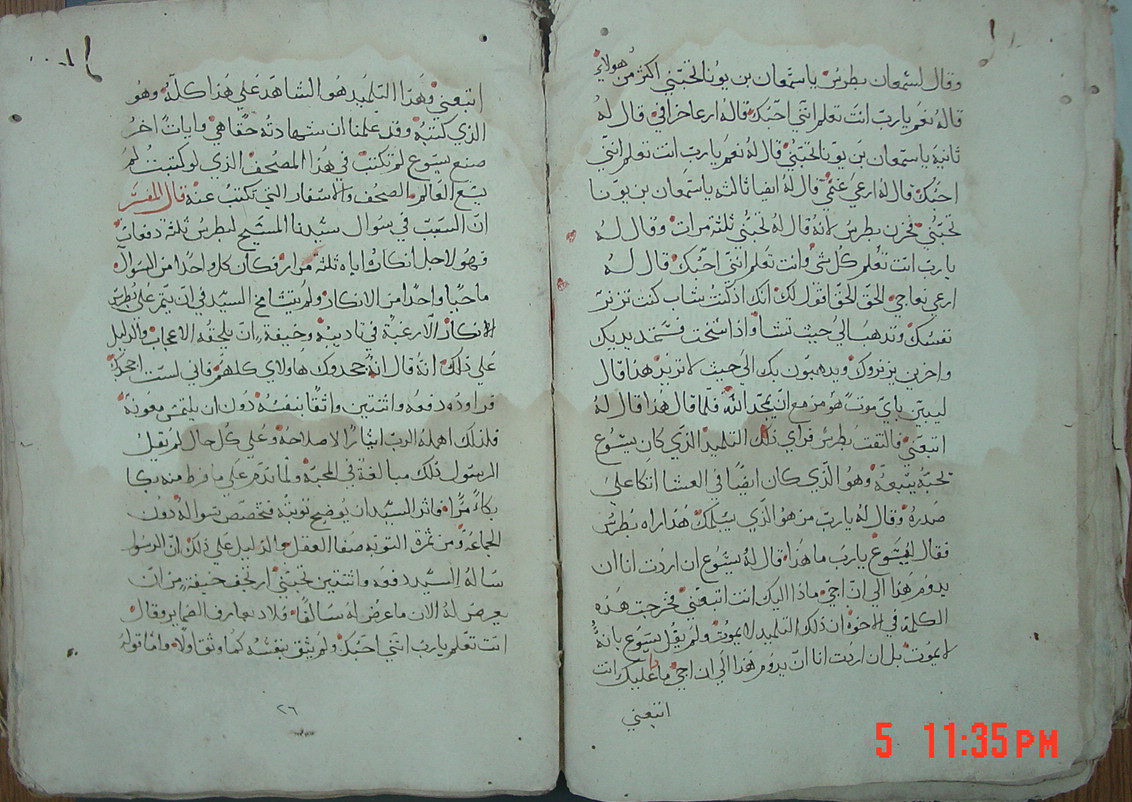 وقال لسمعان بطرس ياسمعان بن يونا اتحبني اكثر من هولاء
قال له نعم يارب انت تعلم انني احبك قال له ارعا خرافي قال له
ثانية ياسمعان بن يونا اتحبني قال له نعم يارب انت تعلم انني
احبك قال له ارعي غنمي قال له ايضا ثالثه ياسمعان بن يونا
تحبني فحزن بطرس لانه قال له تحبني ثلثة مرات وقال له
يارب انت تعلم كل شي وانت تعلم انني احبك قال له
ارعي نعاجي الحق الحق اقول لك انك اذ كنت شاب كنت تزنر
نفسك وتذهب الي حيث تشا واذا شخت فستمد يديك
واخرين يزنروك ويذهبون بك الي حيث لا تريد هذا قال
ليبين باي موت هو مزمع ان يمجد الله فلما قال هذا قال له
اتبعني فالتفت بطرس فراي ذلك التلميذ الذي كان يسوع
تحبه يتبعه وهو الذي كان ايضا في العشا اتكا علي
صدره وقال له يارب من هو الذي يسلمك هذا راه بطرس
فقال ليسوع يارب ما هذا قال له يسوع ان اردت انا ان
يدوم هذا الي ان اجي ماذا اليك انت اتبعني فخرجت هذه
الكلمة في الاخوة ان ذلك التلميذ لا يموت ولم يقل يسوع بانه
لا يموت بل ان اردت انا ان يدوم هذا الي ان اجي ما عليك انت
اتبعني
اتبعني وهذا التلميذ هو الشاهد علي هذا كله وهو
الذي كتبه وقد علمنا ان شهادته حقا هي وايات اخر
صنع يسوع لم تكتب في هذا المصحف الذي لو كتبت لم
يسع العالم الصحف والاسفار التي تكتب عنه قال المفسر
ان السبب في سوال سيدنا المسيح لبطرس ثلثة دفعات
فهو لاجل انكاره اياه ثلثة مرار فكان كل واحدا من السوال
ماحيا واحدا من الانكار ولم يتسامح السيد في ان يتم علي بطرس
الانكار الا رغبة في تاديبه وخيفة ان يلحقه الاعجاب والدليل
علي ذلك انه قال انه جحدوك هاولاي كلهم فاني لست اجحدك
فراوده دفعه واثنتين واثقا بنفسه دون ان يلتمس معونة
فلذلك اهمله الرب ايثارا لاصلاحه وعلي كل حال لم يقبل
الرسول ذلك مبالغة في المحبة ولما ندم علي ما فرط منه بكا
بكاء مرا فاثر السيد ان يوضح توبته فخصص سواله دون
الجماعة ومن ثمرة التوبة صفا العقل والدليل علي ذلك ان الرسول
ساله السيد دفعه واثنتين تحبني ارتجف خيفة من ان
يعرض له الان ما عرض له سالفا فلاذ بعارف الضماير وقال
انت تعلم يارب انني احبك ولم يثق بنفسه كما وثق اولا واما قوله
٢٦
5 11:35 PM